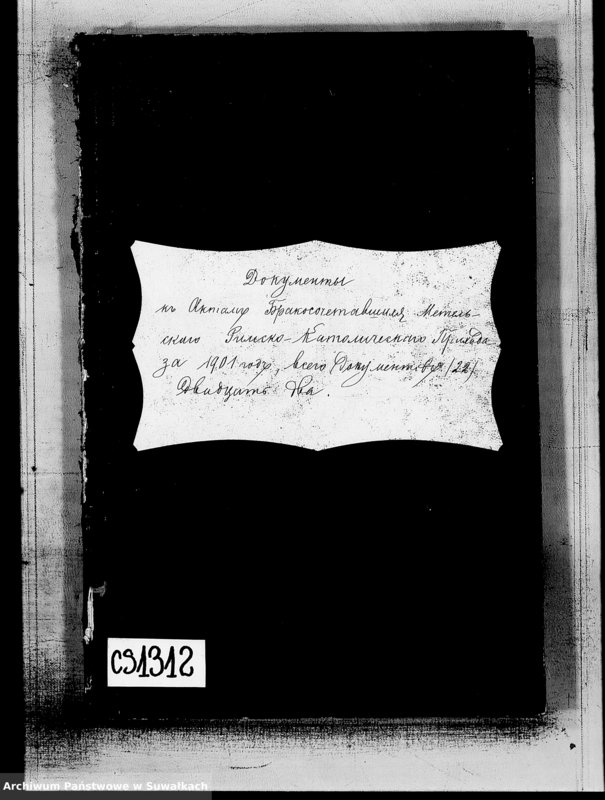 Документы
къ Актамъ Бракосочетавшихся Метель-
скаго Римско-Католическаго Прихода
за 1901 годъ, всего Документовъ /22/
Двадцать два.
CS1312
Archiwum Państwowe w Suwałkach